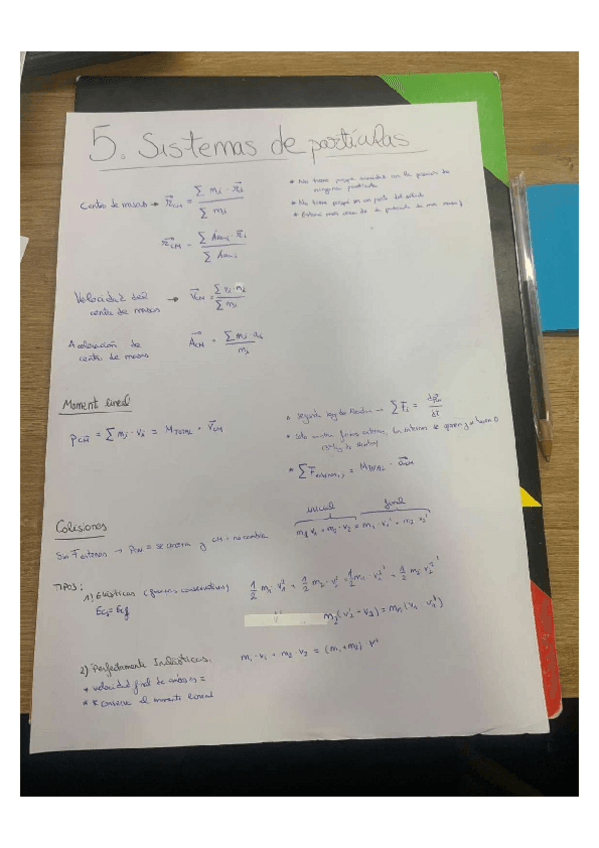 5. Sistemas de partículas
Centro de masas → r⃗CM = Σ mi · r⃗i / Σ mi
* No tiene porque coincidir con la posición de
ninguna partícula
* No tiene porque en un punto del sólido
* Estará más cerca de la partícula de más masa
r⃗CM = Σ · r⃗i / Σ
Velocidad del
centro de masas → v⃗CM = Σ / Σ mi
Aceleración de
centro de masas A⃗CM = Σ mi · ai / mi
Moment lineal
PCM = Σ mi · vi = MTOTAL · v⃗CM
* Segunda ley de Newton → Σ F⃗i = dp⃗ / dt
* Solo fuerzas externas, las internas se 0
* Σ F⃗externas = MTOTAL · a⃗CM
Colisiones
inicial final
Sin Fexternas → PCM = se conserva y CM = no cambia
m1 v1 + m2 · v2 = m1 · v1' + m2 v2'
TIPOS:
1) Elásticas (fuerzas conservativas) 1/2 m1 v1² + 1/2 m2 · v2² = 1/2 m1 · v1'² + 1/2 m2 v2'²
Eci = Ecf
m2 (v2' - v2) = m1 (v1 v1')
2) Perfectamente Inelásticas: m1 · v1 + m2 · v2 = (m1 + m2) v'
* velocidad final de ambos es =
* Se conserva el momento lineal